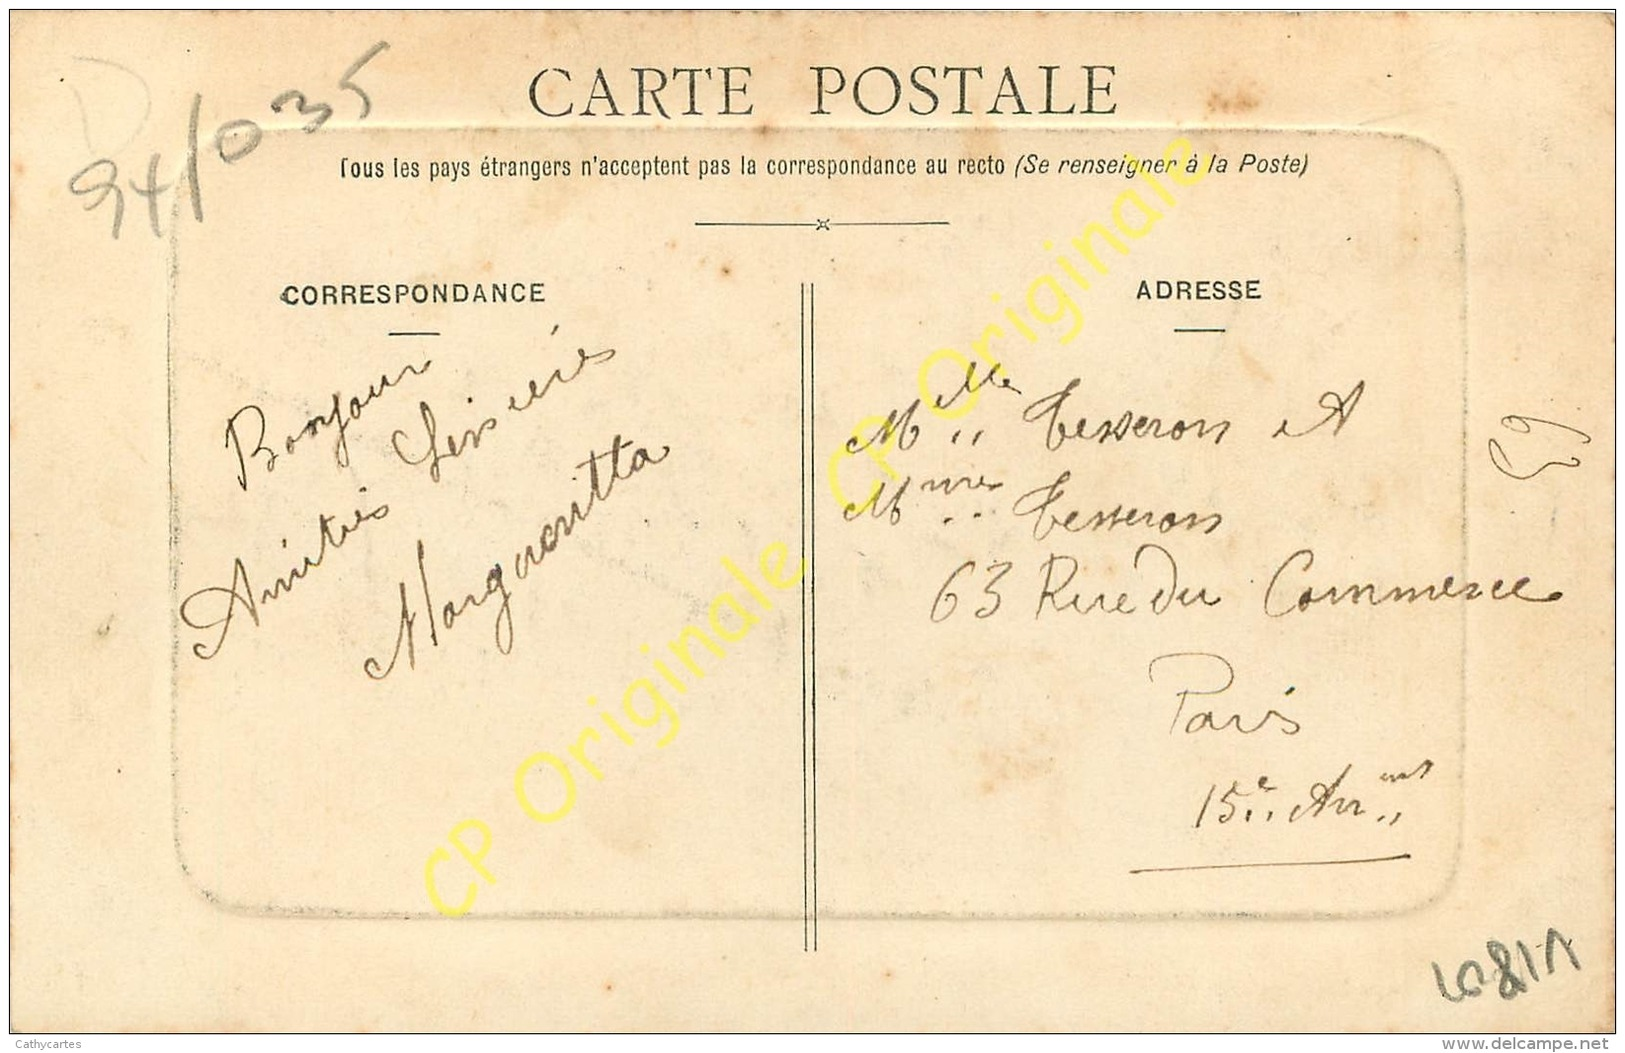 CARTE POSTALE
94/035
Tous les pays étrangers n'acceptent pas la correspondance au recto (Se renseigner à la Poste)
CORRESPONDANCE
Bonjour
Amitiés Sincères
Marguaritta
ADRESSE
Melle Tesseron A
Mme Tesseron
63 Rue du Commerce
Paris
15e Arrmt
CP Originale
CP Originale
Cathycartes
www.delcampe.net